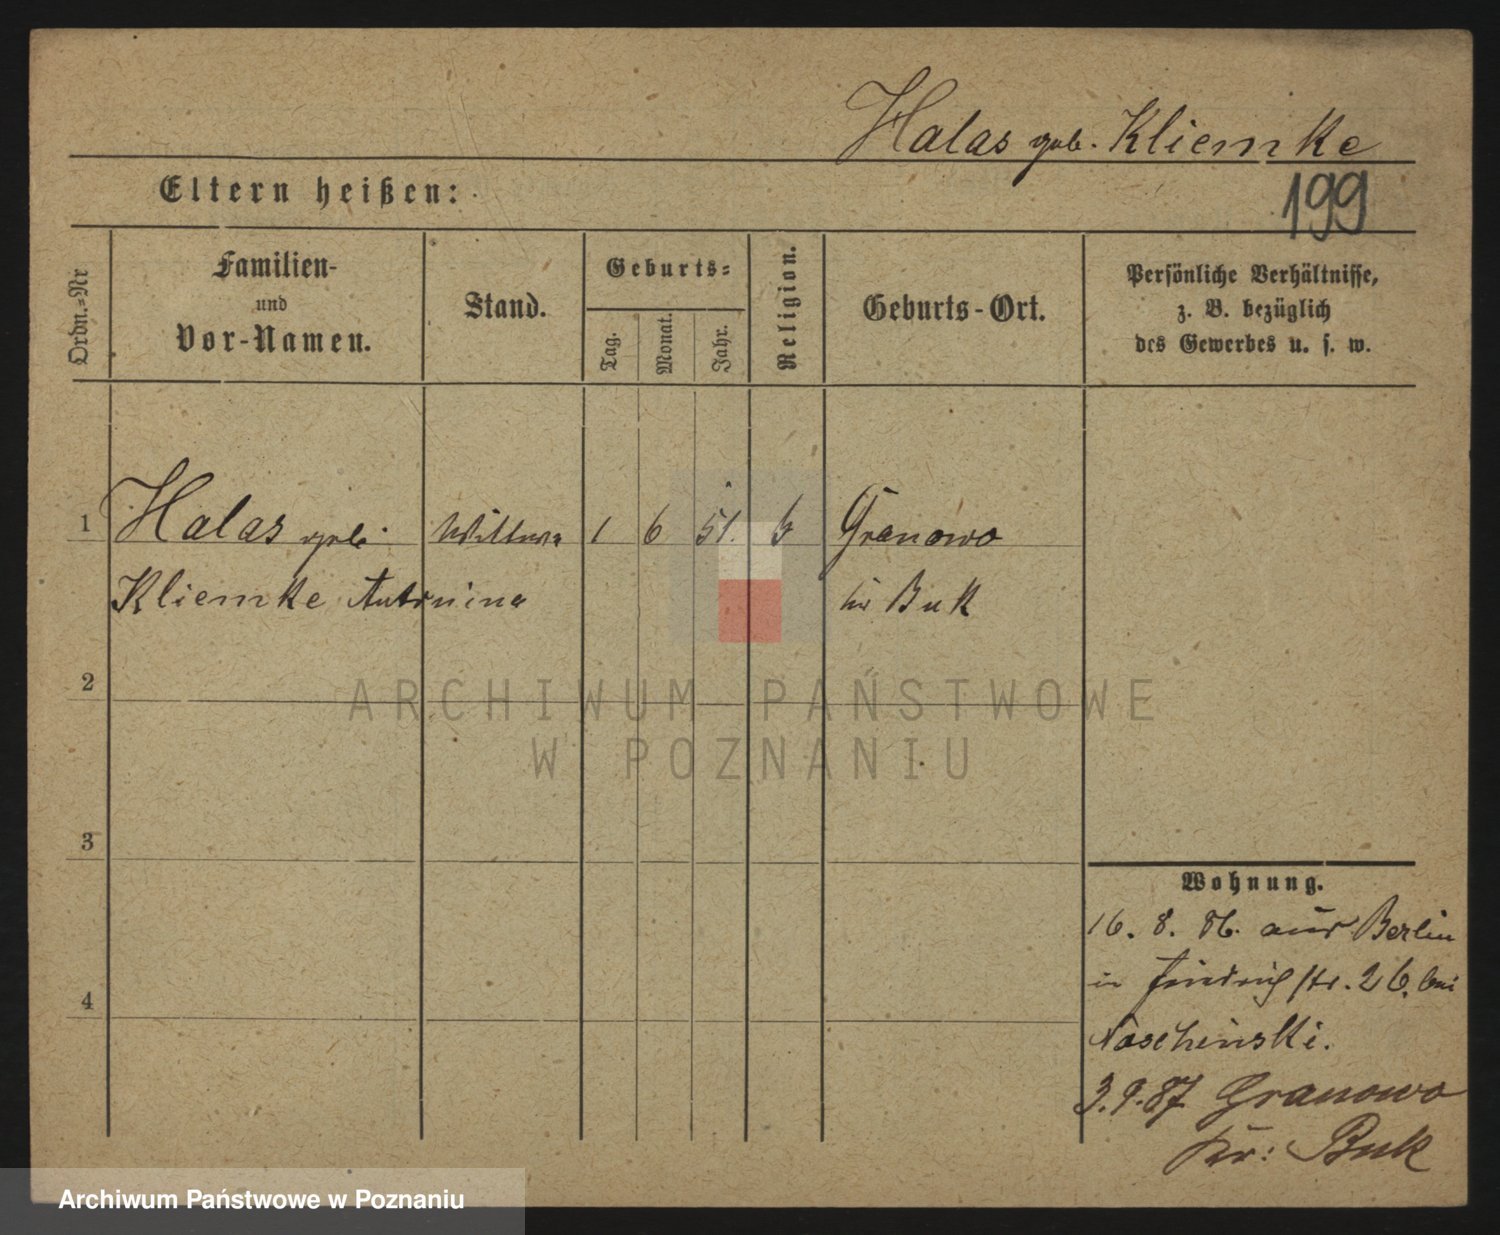 Halas geb. Kliemke
Eltern heißen:
199
Ordn.=Nr
Familien-
und
Vor-Namen.
Stand.
Geburts=
Tag.
Monat.
Jahr.
Religion.
Geburts-Ort.
Persönliche Verhältnisse,
z. B. bezüglich
des Gewerbes u. s. w.
1 Halas geb. Wittwe 1 6 51. Granowo
Kliemke Antonina Kr Buk
2
ARCHIWUM PAŃSTWOWE
W POZNANIU
3
Wohnung.
16. 8. 86. aus Berlin
in Friedrichstr. 26. bei
4
3.9.87 Granowo
Kr: Buk
Archiwum Państwowe w Poznaniu